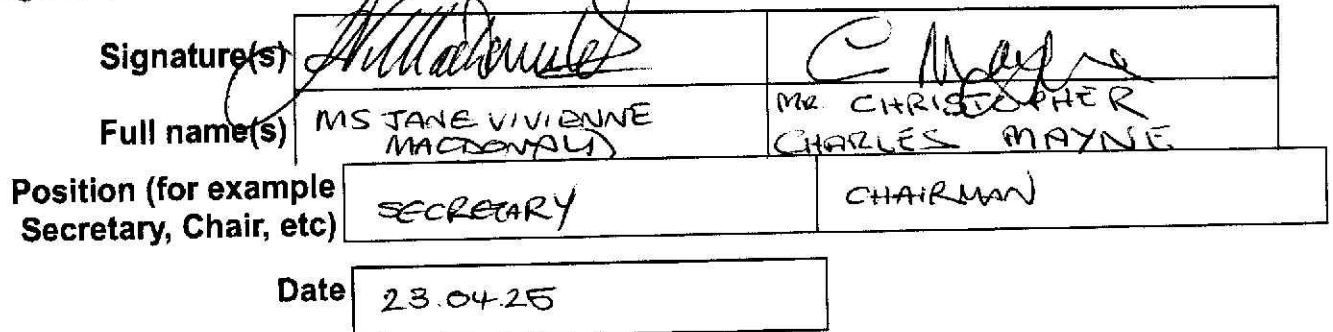 Signature(s) JVMacDonald C Mayne
Full name(s) MS JANE VIVIENNE MACDONALD MR CHRISTOPHER CHARLES MAYNE
Position (for example Secretary, Chair, etc) SECRETARY CHAIRMAN
Date 23.04.25